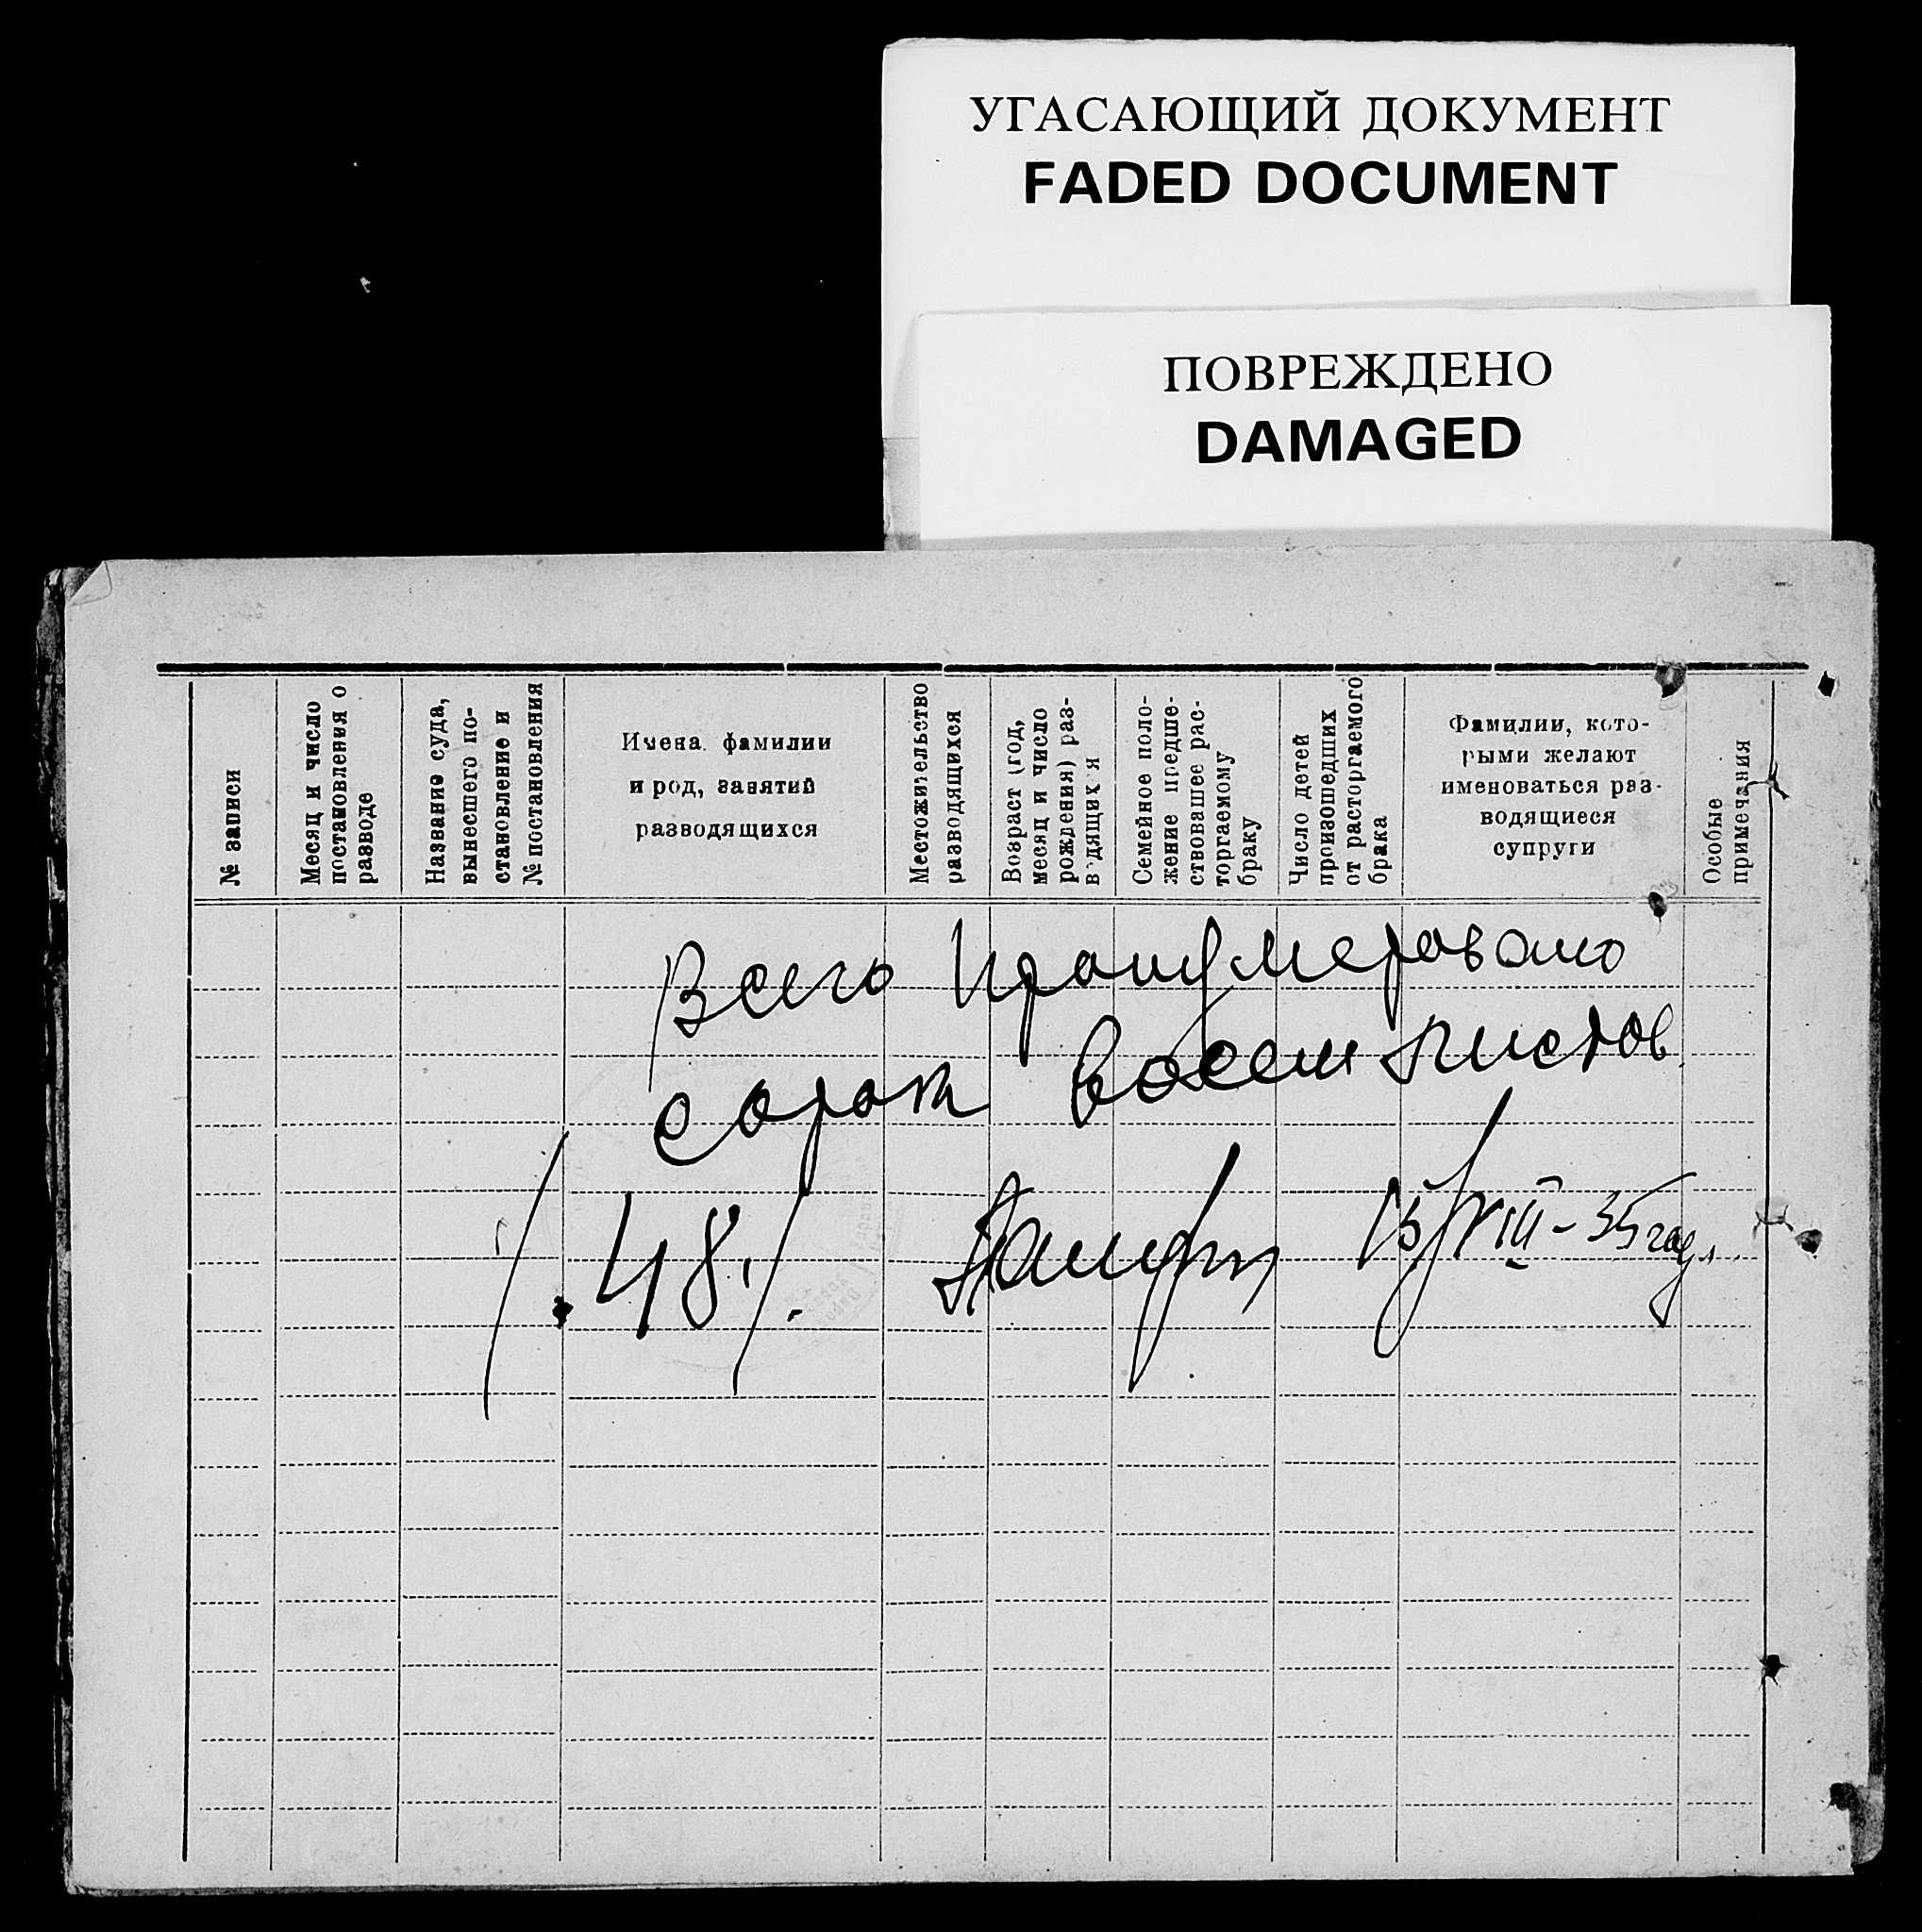 УГАСАЮЩИЙ ДОКУМЕНТ
FADED DOCUMENT
ПОВРЕЖДЕНО
DAMAGED
№ записи
Месяц и число
постановления о
разводе
Название суда,
вынесшего по-
становление и
№ постановления
Имена. фамилии
и род, занятий
разводящихся
Местожительство
разводящихся
Возраст (год,
месяц и число
рождения) раз-
водящихся
Семейное поло-
жение предше-
ствовавшее рас-
торгаемому
браку
Число детей
произошедших
от расторгаемого
брака
Фамилии, кото-
рыми желают
именоваться раз-
водящиеся
супруги
Особые
примечания
Всего пронумеровано
сорок восем листов
/.48./. 13/VIII-35 год